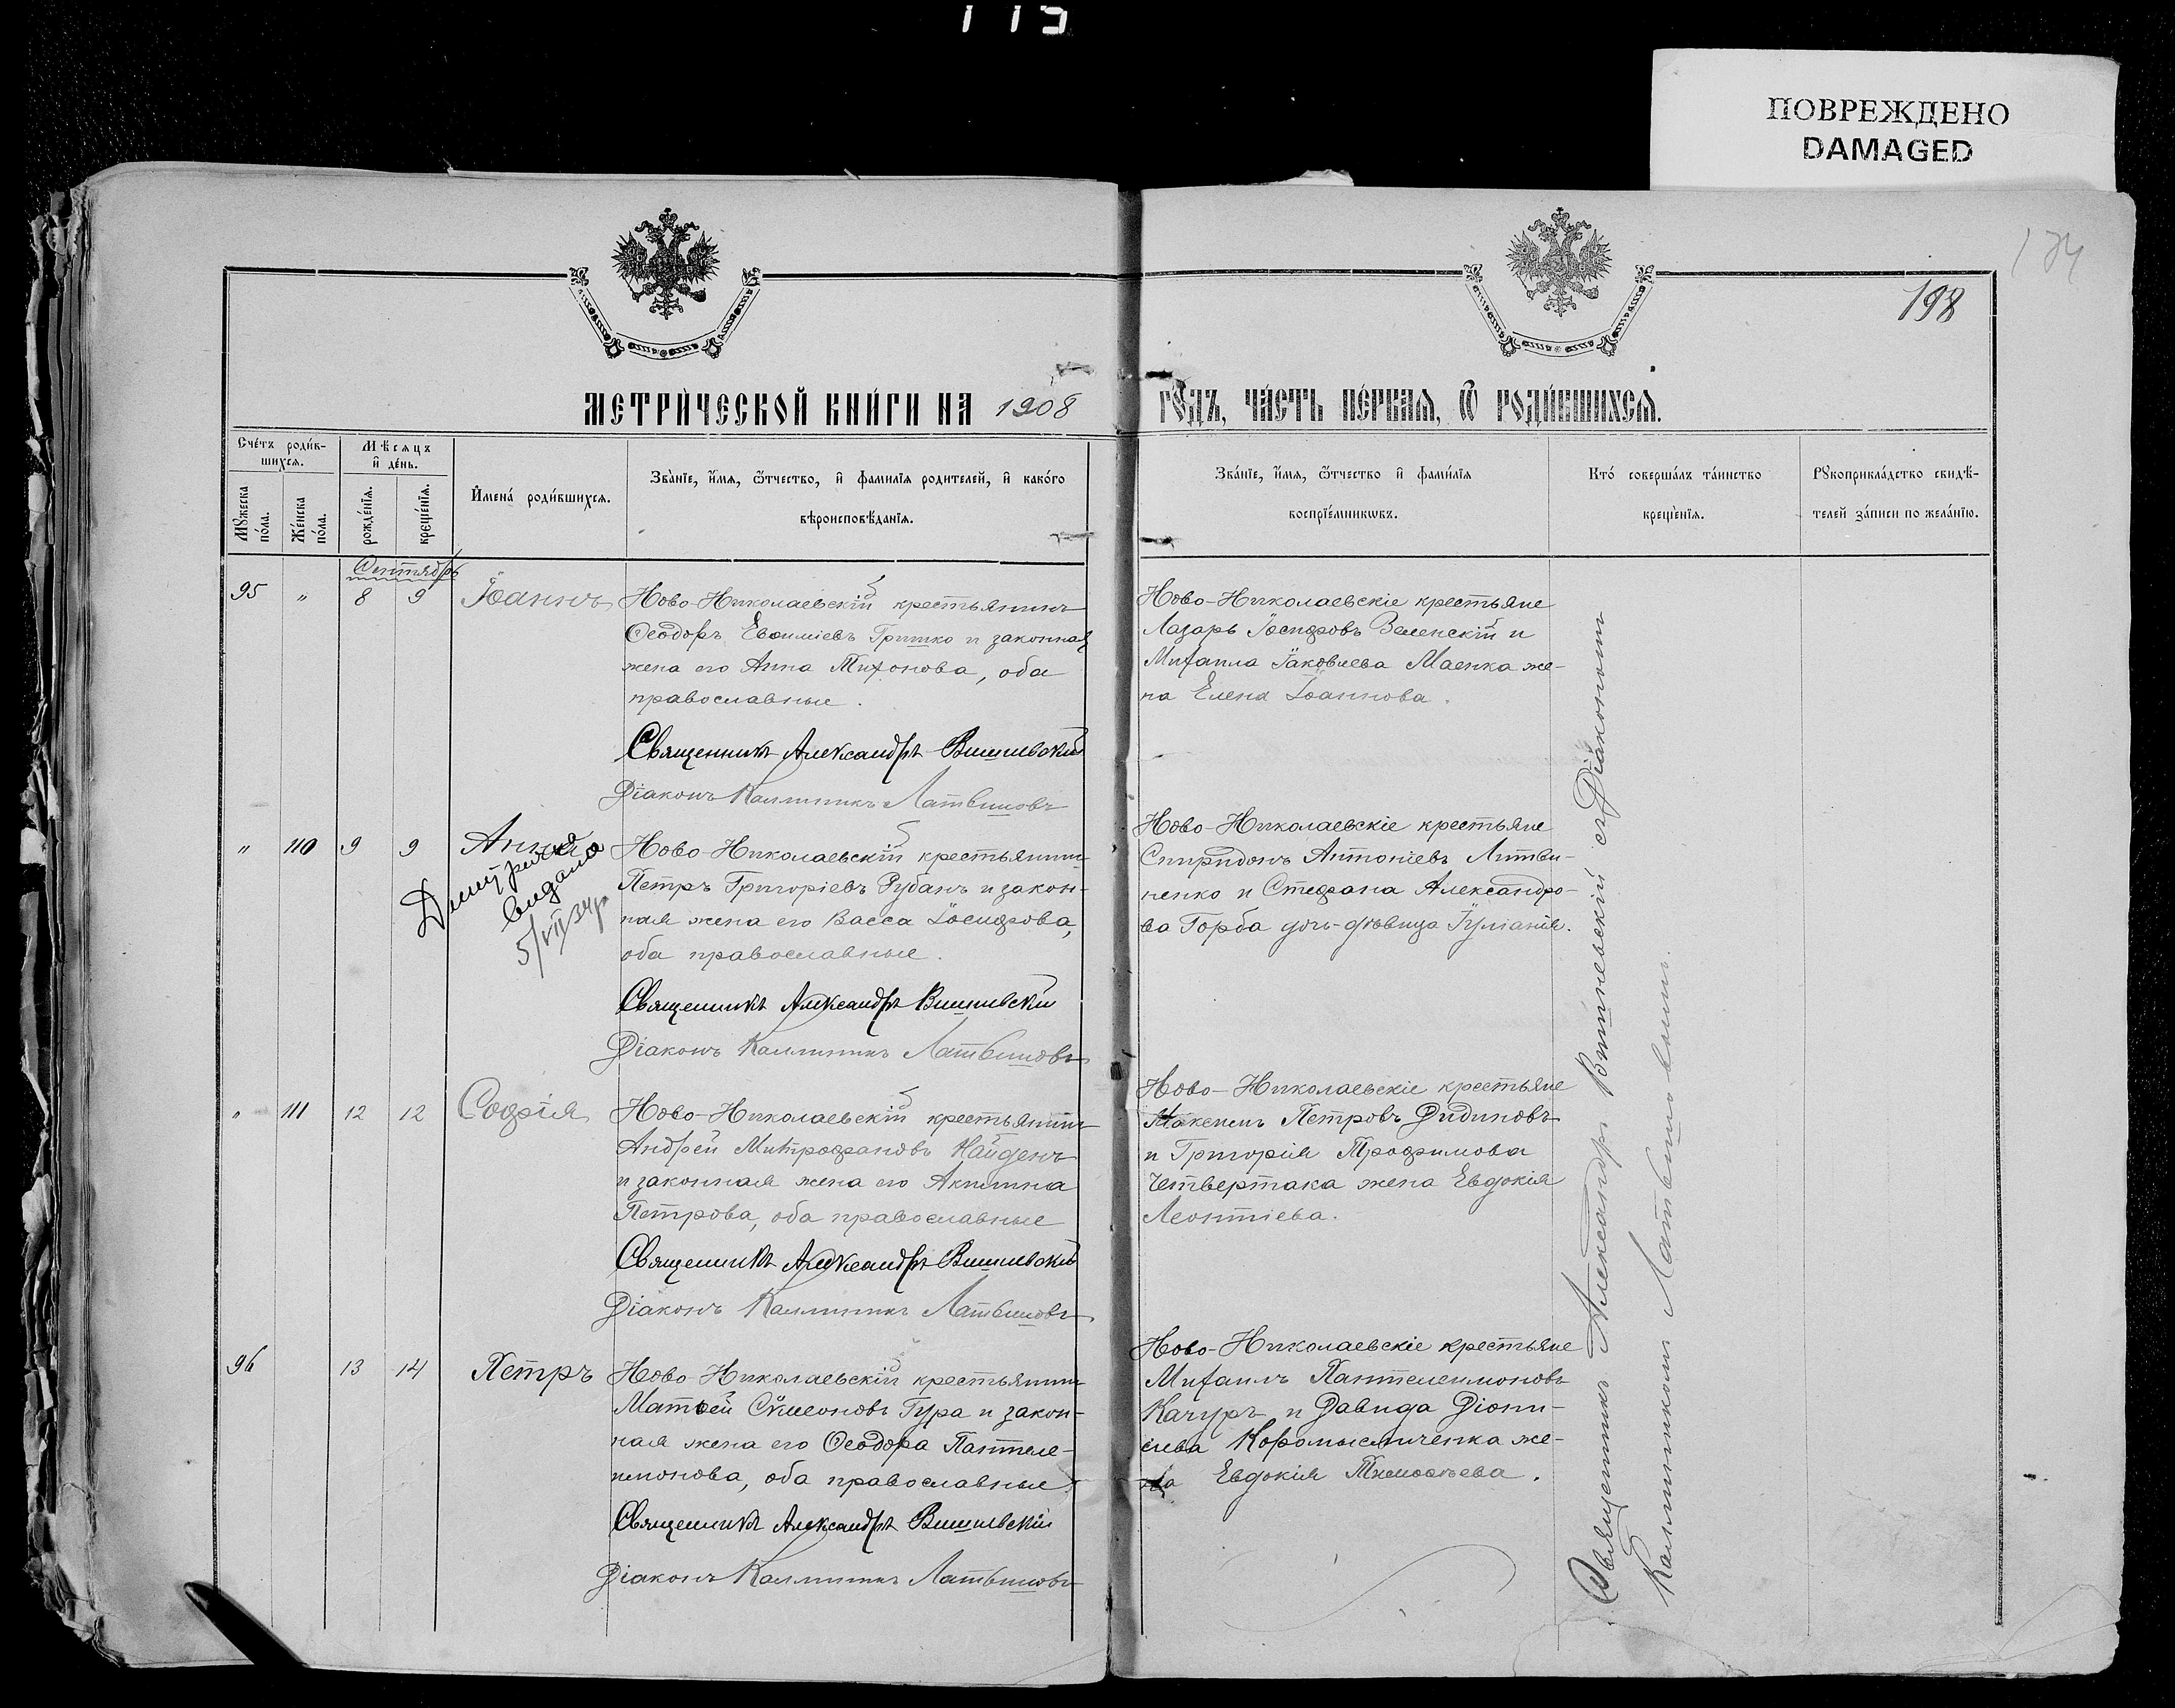 115
ПОВРЕЖДЕНО
DAMAGED
174
198
МЕТРИ́ЧЕСКОЙ КНИ́ГИ НА 1908
ГО́ДЪ, ЧА́СТЬ ПЕ́РВАЯ, Ѿ РОДИ́ВШИХСЯ.
Сче́тъ роди́в-
шихся.
Мѣсяцъ
и҆ де́нь.
Мꙋжеска по́ла.
Же́нска по́ла.
рожде́нїя.
креще́нїя.
И҆мена́ роди́вшихся.
Зва́нїе, и҆́мя, ѻ҆́тчество, и҆ фами́лїя родителей, и҆ како́го
вѣроисповѣ́данїя.
Зва́нїе, и҆́мя, ѻ҆́тчество и҆ фами́лїя
воспрїе́мниковъ.
Кто́ соверша́лъ та́инство
креще́нїя.
Рꙋкоприкла́дство свидѣ́-
телей за́писи по жела́нїю.
Сентябрь
95 " 8 9 Іоаннъ
Ново-Николаевскій крестьянинъ
Ѳеодоръ Евѳиміевъ Гришко и законная
жена его Анна Тихонова, оба
православные.
Священникъ Александръ Вишневскій
Діаконъ Каллиникъ Латвиновъ
Ново-Николаевскіе крестьяне
Лазарь Іосифовъ Веленскій и
Михаила Іаковлева Маенка же-
на Елена Іоаннова.
" 110 9 9 Анна
видано
5/VII 34 р
Ново-Николаевскій крестьянинъ
Петръ Григоріевъ Рубанъ и закон-
ная жена его Васса Іосифова,
оба православные.
Священникъ Александръ Вишневскій
Діаконъ Каллиникъ Латвиновъ
Ново-Николаевскіе крестьяне
Спиридонъ Антоніевъ Литви-
ненко и Стефана Александро-
ва Горба дочь-дѣвица Іуліанія.
" 111 12 12 Софія
Ново-Николаевскій крестьянинъ
Андрей Митрофановъ Найденъ
и законная жена его Акилина
Петрова, оба православные
Священникъ Александръ Вишневскій
Діаконъ Каллиникъ Латвиновъ
Ново-Николаевскіе крестьяне
Максимъ Петровъ Дидиновъ
и Григорія Трофимова
Четвертака жена Евдокія
Леонтіева.
96 13 14 Петръ
Ново-Николаевскій крестьянинъ
Матѳей Сѵмеоновъ Гура и закон-
ная жена его Ѳеодора Пантеле-
имонова, оба православные
Священникъ Александръ Вишневскій
Діаконъ Каллиникъ Латвиновъ
Ново-Николаевскіе крестьяне
Михаилъ Пантелеимоновъ
Качуръ и Давида Діони-
сіева Коромысличенка же-
на Евдокія Тимоѳеева.
Священникъ Александръ Вишневскій съ Діакономъ
Каллиникомъ Латвиновымъ.